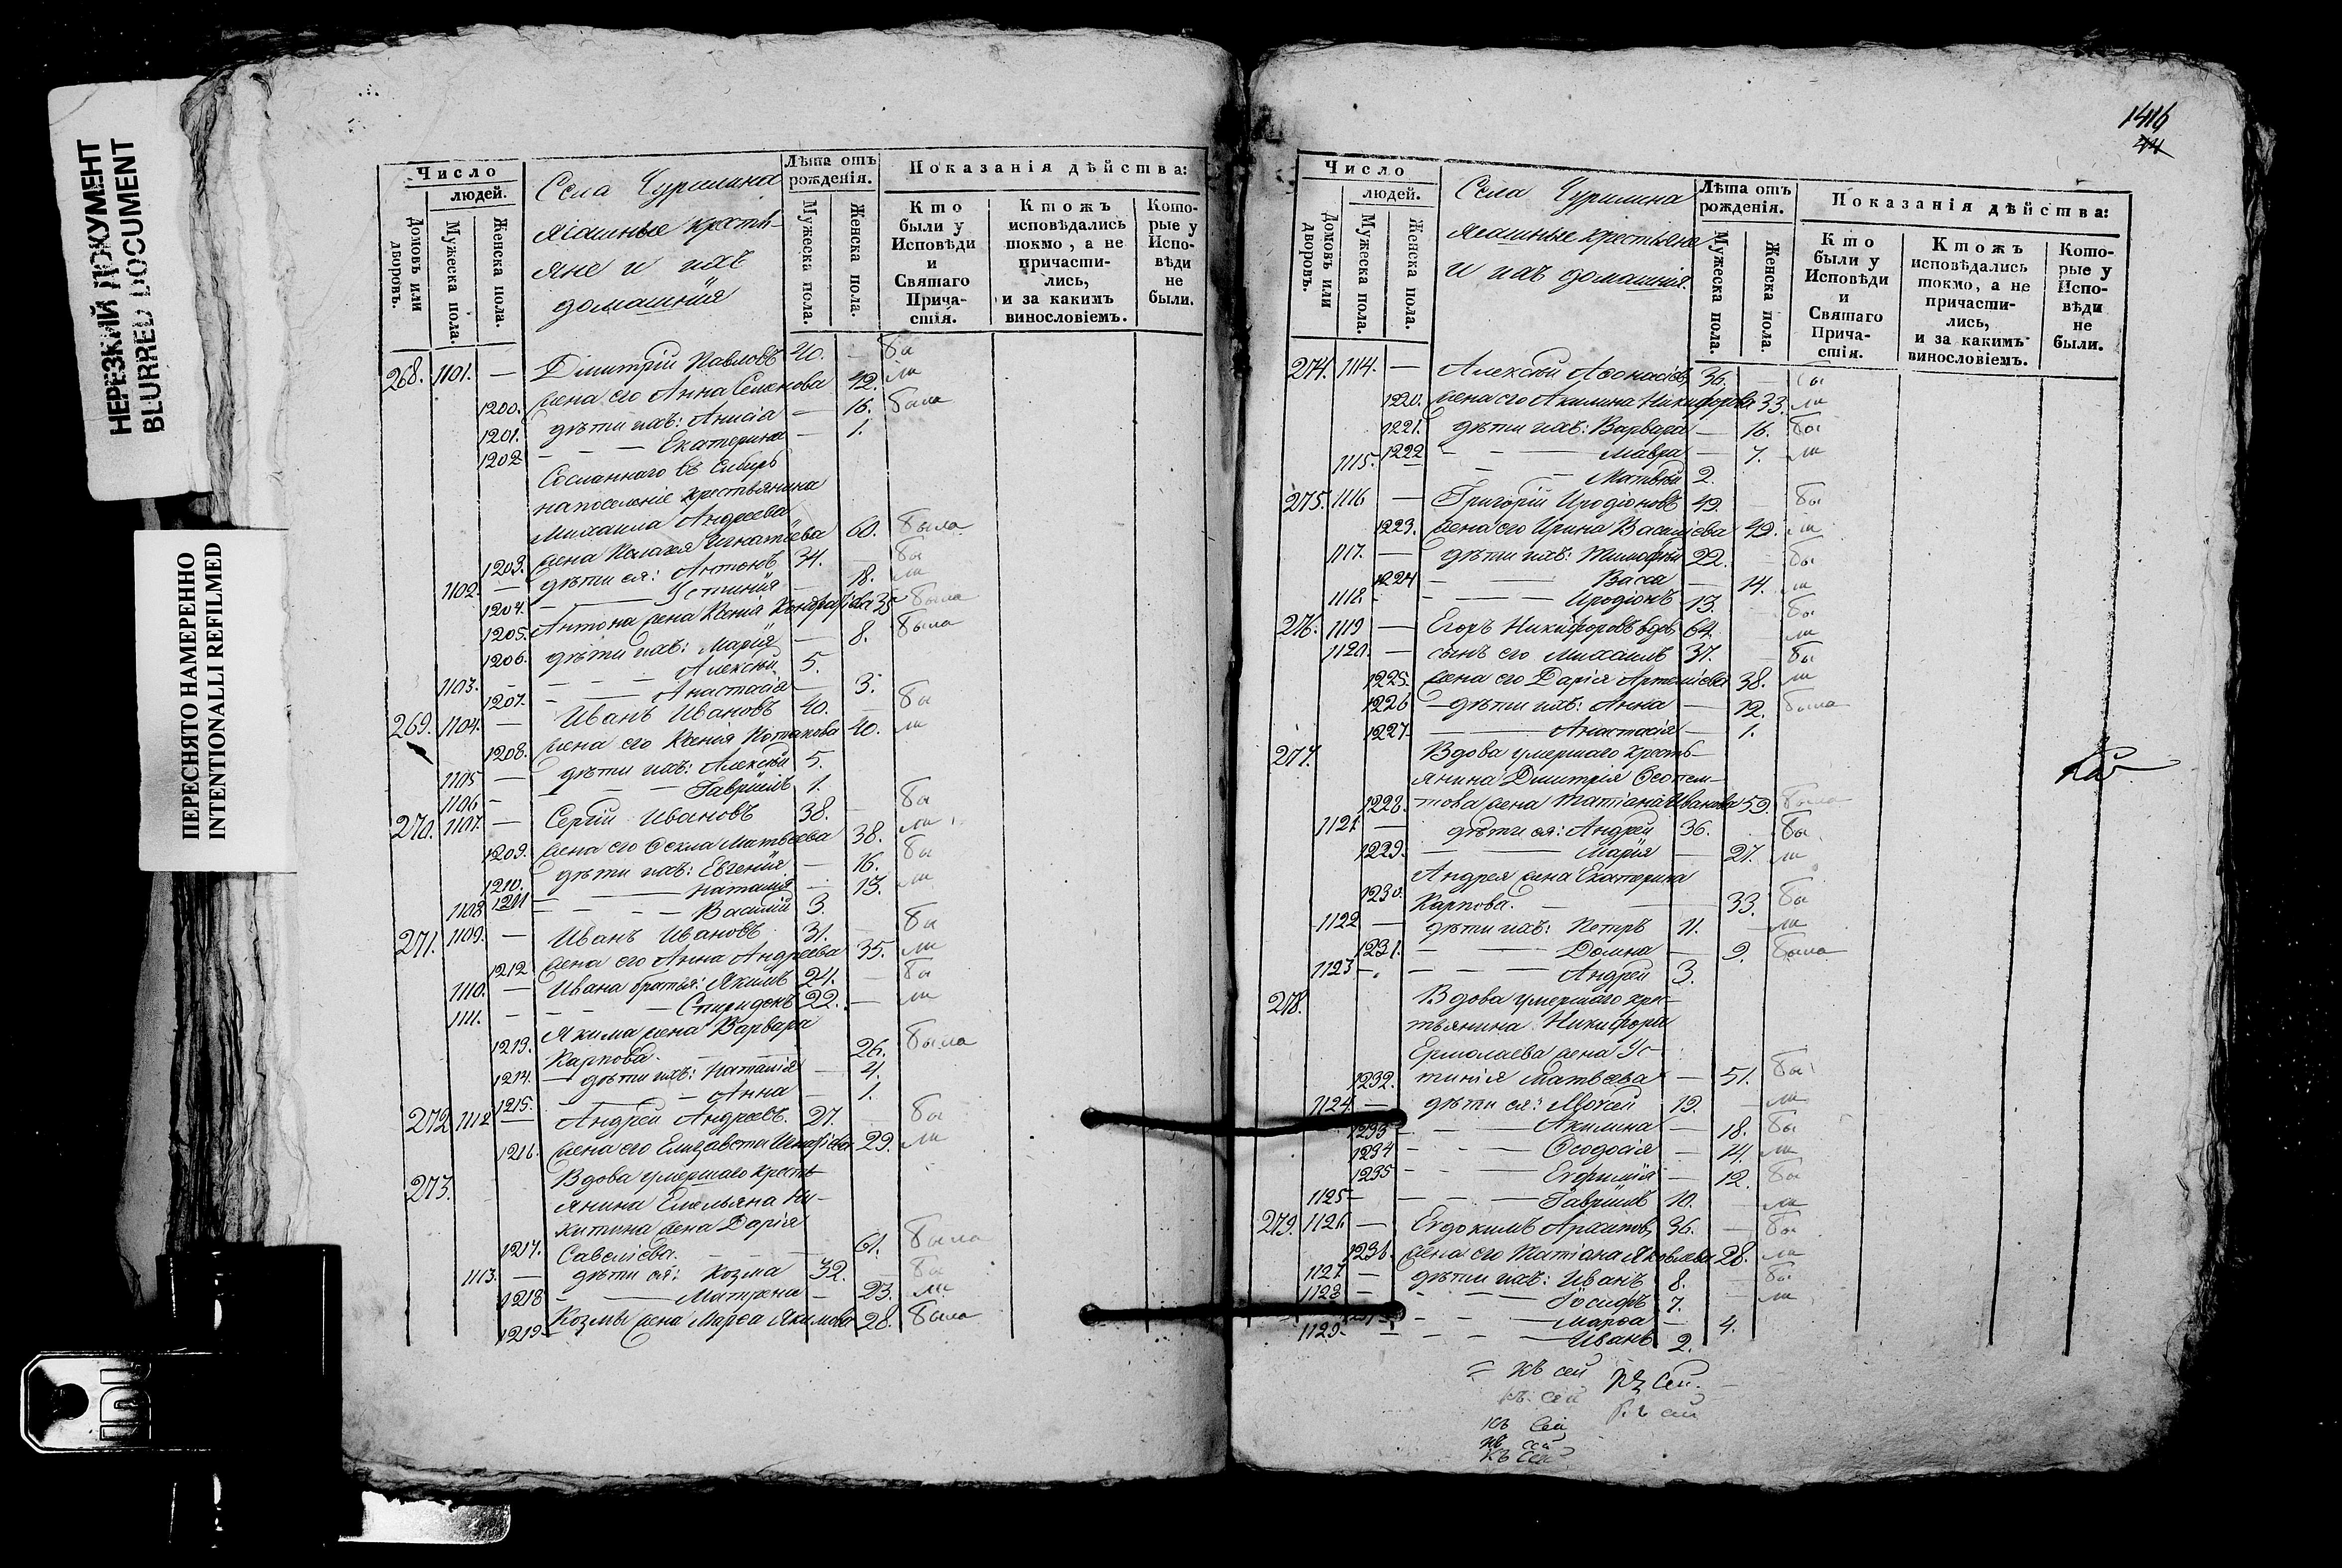 НЕРЕЗКИЙ ДОКУМЕНТ
BLURRED DOCUMENT
ПЕРЕСНЯТО НАМЕРЕННО
INTENTIONALLI REFILMED
Число
людей.
Домовъ или дворовъ.
Мужеска пола.
Женска пола.
Села Чурилина
ясашные кресть-
яне и ихъ
домашнія
Лѣта отъ рожденія.
Мужеска пола.
Женска пола.
Показанія дѣйства:
Кто были у Исповѣди и Святаго Прича-стія.
Ктожъ исповѣдались токмо, а не причасти-лись, и за какимъ винословіемъ.
Кото-рые у Испо-вѣди не были.
268. 1101. — Димитрій Павловъ 40. — бы
1200. жена его Анна Семенова 42. ли
1201. дѣти ихъ: Анисія — 16. была
1202 — — Екатерина — 1.
Сосланнаго въ Сибирь
на поселеніе крестьянина
Михаила Андреева
1203. жена Пелагея Игнатіева 60. была
1102. — дѣти ея: Антонъ 34. — бы
1204. — — Устинія — 18. ли
1205. Антона жена Ксенія Кондратіева 35 была
1206. дѣти ихъ: Марія — 8. была
1103. — — — Алексѣй 5.
1207. — — Анастасія — 3.
269. 1104. — Иванъ Ивановъ 40. — бы
1208. жена его Ксенія Потапова 40. ли
1105 — дѣти ихъ: Алексѣй 5.
1106 — — — Гавріилъ 1.
270. 1107. — Сергій Ивановъ 38. — бы
1209. жена его Ѳекла Матвѣева 38. ли
1210. дѣти ихъ: Евгенія — 16. бы
1211 — — Наталія — 13. ли
1108 — — — Василій 3.
271. 1109. — Иванъ Ивановъ 31. — бы
1212 жена его Анна Андреева 35. ли
1110. — Ивана братья: Якимъ 24. — бы
1111. — — — Спиридонъ 22. — ли
Якима жена Варвара
1213. Карпова. — — 26. была
1214. — дѣти ихъ: Наталія — 4.
1215. — — Анна — 1.
272 1112 — Андрей Андреевъ. 27. — бы
1216. жена его Елизавета Игнатіева 29. ли
273. Вдова умершаго кресть-
янина Емельяна Ни-
китина жена Дарія
1217. Савеліева. — — 61. была
1113. — дѣти ея: Козма 32. — бы
1218 — — Матрена — 23. ли
1219 Козмы жена Марѳа Якимова 28. была
1416
44
Число
людей.
Домовъ или дворовъ.
Мужеска пола.
Женска пола.
Села Чурилина
ясашные крестьяне
и ихъ домашнія.
Лѣта отъ рожденія.
Мужеска пола.
Женска пола.
Показанія дѣйства:
Кто были у Исповѣди и Святаго Прича-стія.
Ктожъ исповѣдались токмо, а не причасти-лись, и за какимъ винословіемъ.
Кото-рые у Испо-вѣди не были.
274. 1114. — Алексѣй Аѳонасіевъ 36. — бы
1220. жена его Акилина Никифорова 33. ли
1221. дѣти ихъ: Варвара — 16. бы
1222 — — Мавра — 7. ли
1115. — — — Матвѣй 2.
275. 1116 — Григорій Иродіоновъ 49. — бы
1223. жена его Ирина Василіева 49. ли
1117. — дѣти ихъ: Тимоѳей 22. — бы
1224 — — Васса — 14. ли
1118. — — — Иродіонъ 13. — бы
276. 1119 — Егоръ Никифоровъ вдов. 64. ли
1120. — сынъ его Михаилъ 37. — бы
1225. жена его Дарія Артеміева 38. ли
1226 — дѣти ихъ: Анна — 12. была
1227. — — Анастасія — 1.
277. Вдова умершаго кресть-
янина Димитрія Ѳеоктис-
това жена Татіана Иванова
1228. 59. была
1121. — дѣти ея: Андрей 36. — бы
1229. — — Марія — 27. ли
Андрея жена Екатерина
1230. Карпова. — — 33. бы
1122 — дѣти ихъ: Петръ 11. — ли
1231. — — Домна — 9. была
1123 — — — Андрей 3.
278. Вдова умершаго крес-
тьянина Никифора
Ермолаева жена Ус-
1232. тинія Матвѣева — 51. бы
1124. — дѣти ея: Моѵсей 19. — ли
1233 — — Акилина — 18. бы
1234 — — Ѳеодосія — 14. ли
1235 — — Евфимія — 12. бы
1125 — — — Гавріилъ 10. — ли
279. 1126 — Евдокимъ Архиповъ 36. — бы
1236. жена его Татіана Яковлева 28. ли
1127. — дѣти ихъ: Иванъ 8. — бы
1128 — — — Іосифъ 7. — ли
— — Марѳа — 4.
1129 — — — Иванъ 2.
къ сей къ сей
къ сей къ сей
къ сей
къ сей
къ сей